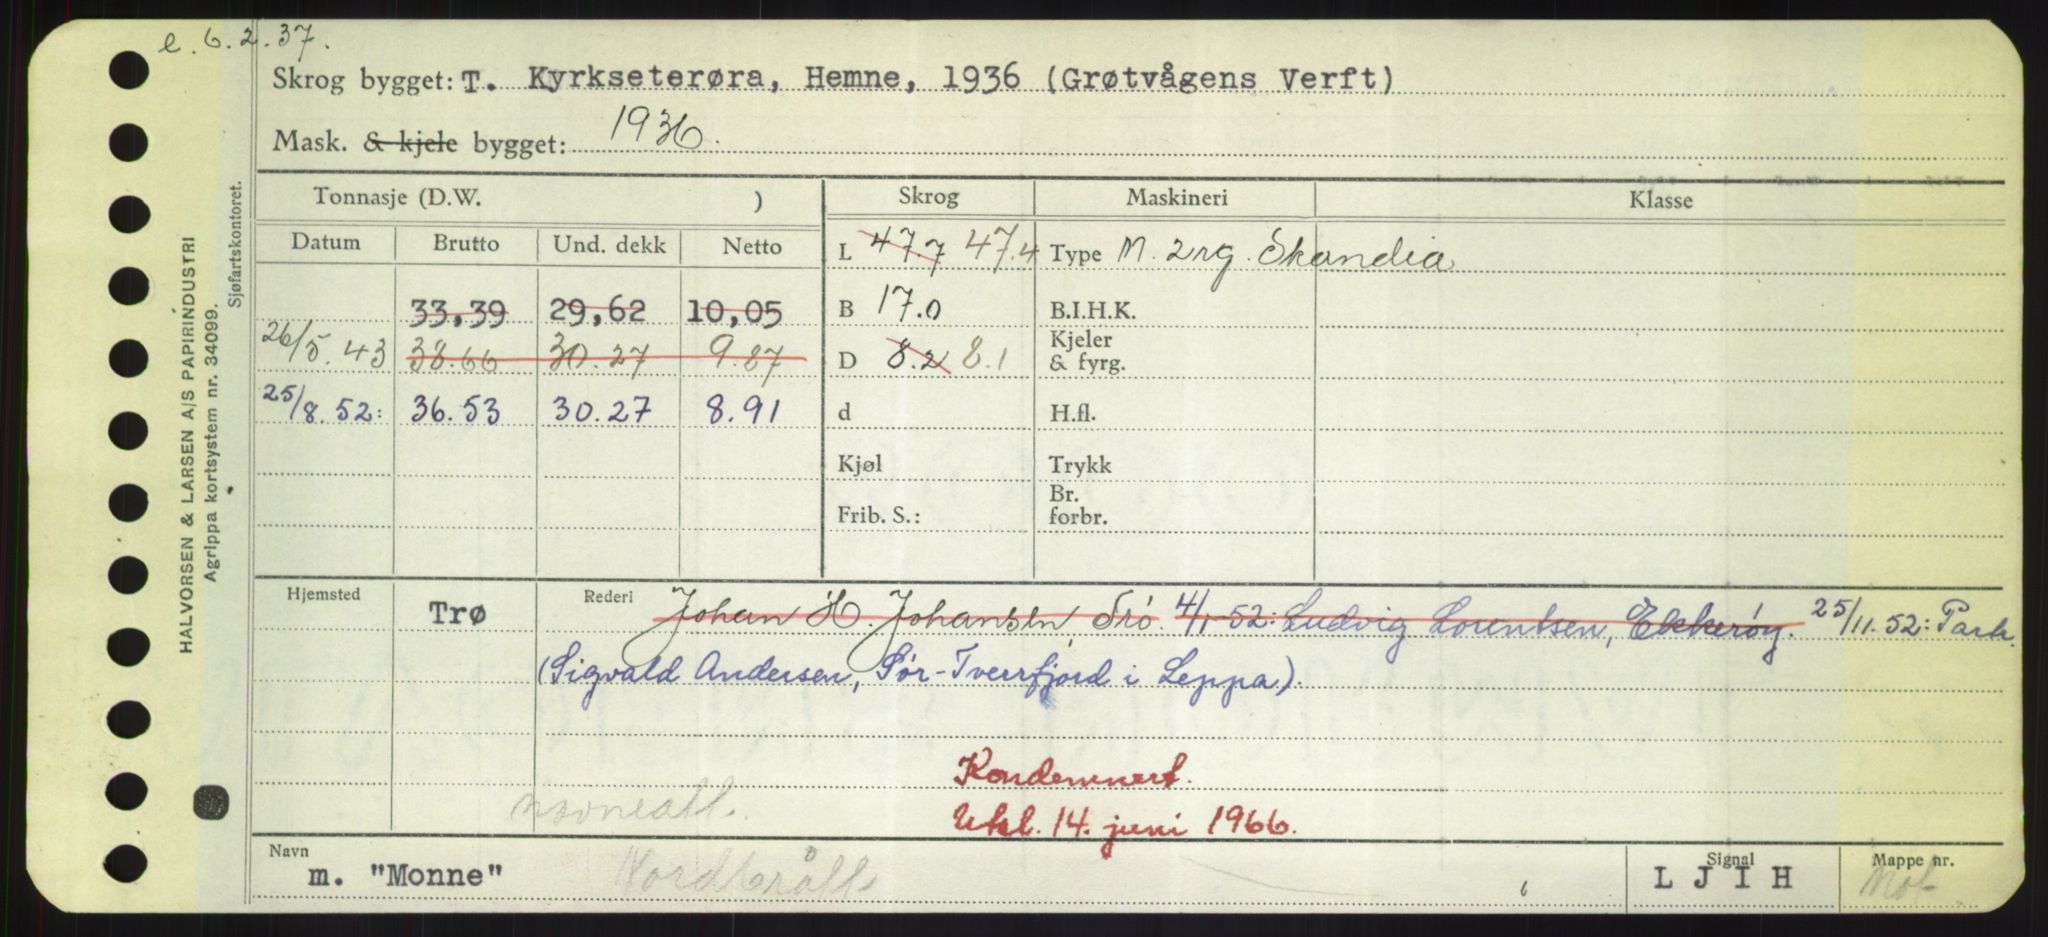 e. 6.2.37.
Skrog bygget: T. Kyrkseterøra, Hemne, 1936 (Grøtvågens Verft)
Mask. & kjele bygget: 1936.
Tonnasje (D.W. ) Skrog Maskineri Klasse
Datum Brutto Und. dekk Netto L 47.7 47.4 Type M. 2 rg. Skandia
33,39 29,62 10,05 B 17.0 B.I.H.K.
26/5.43 38.66 30.27 9.87 D 8.2 8.1 Kjeler & fyrg.
25/8.52: 36.53 30.27 8.91 d H.fl.
Kjøl Trykk
Frib. S.: Br. forbr.
Hjemsted Trø Rederi Johan H. Johansen, Trø. 4/1-52: Ludvig Lorentsen, Ekkerøy. 25/11.52: Partr.
(Sigvald Andersen, Sør-Tverrfjord i Loppa).
Kondemnert.
navneatt.
Utsl. 14. juni 1966.
Navn m. "Monne" Signal L J I H Mappe nr. Mot
HALVORSEN & LARSEN A/S PAPIRINDUSTRI
Agrippa kortsystem nr. 34099.
Sjøfartskontoret.